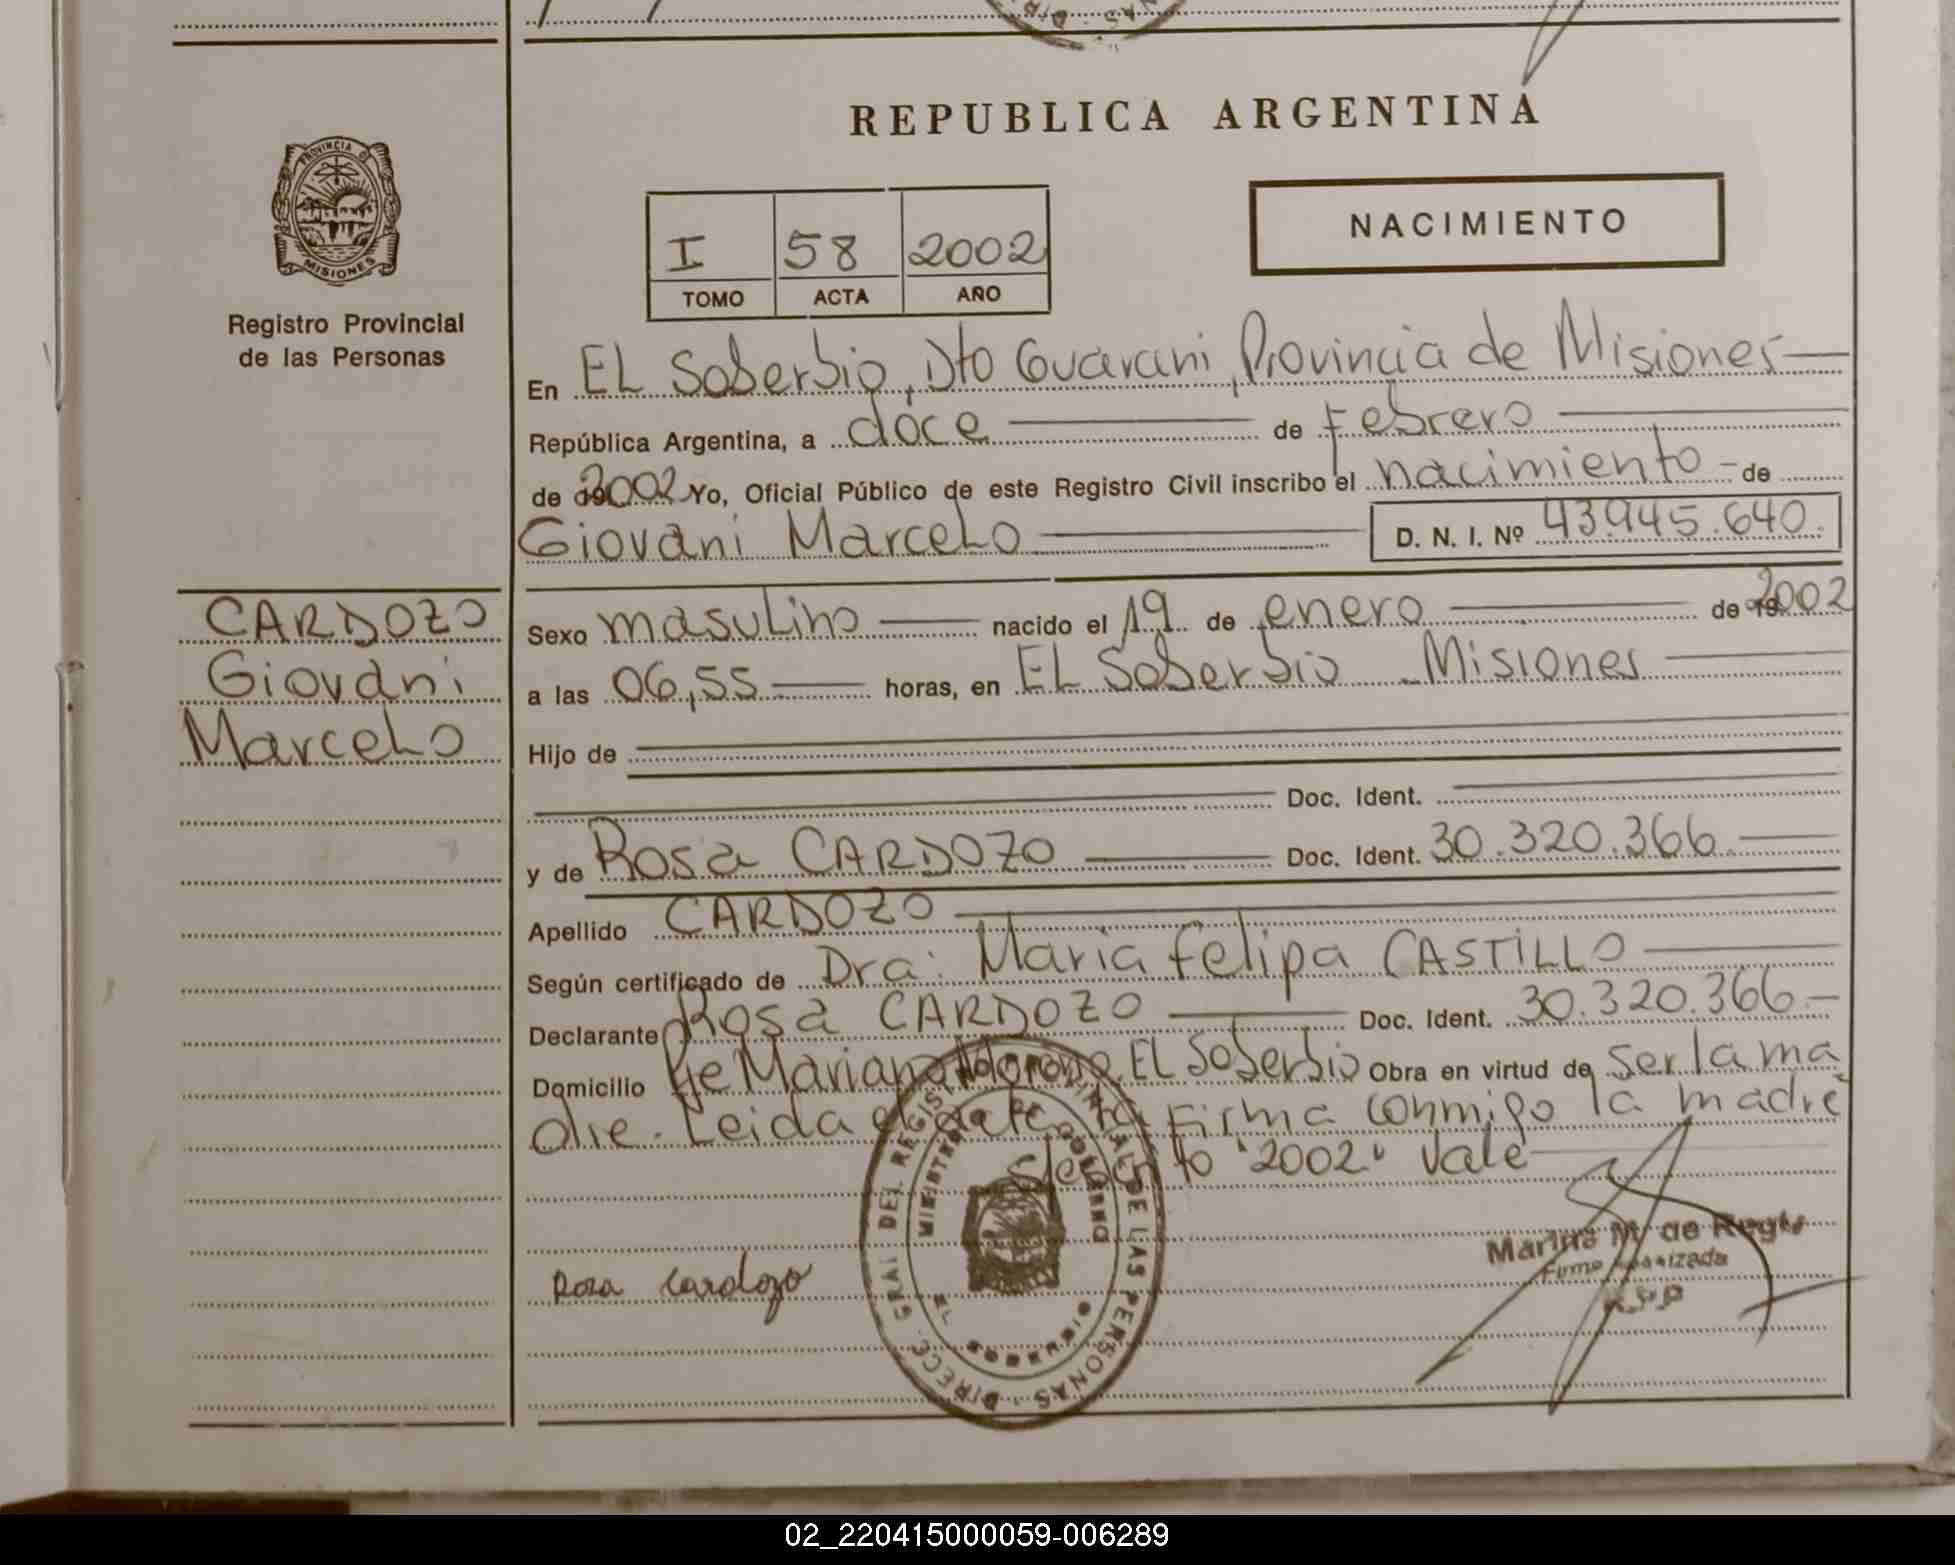 REPUBLICA ARGENTINA
PROVINCIA DE
MISIONES
Registro Provincial
de las Personas
I 58 2002
TOMO ACTA AÑO
NACIMIENTO
En EL Soberbio, Dto Guarani, Provincia de Misiones
República Argentina, a doce de Febrero
de 2002 Yo, Oficial Público de este Registro Civil inscribo el nacimiento de
Giovani Marcelo D. N. I. Nº 43.945.640.
CARDOZO
Giovani
Marcelo
Sexo masulino nacido el 19 de enero de 2002
a las 06,55 horas, en EL Soberbio - Misiones
Hijo de
Doc. Ident.
y de Rosa CARDOZO Doc. Ident. 30.320.366
Apellido CARDOZO
Según certificado de Dra. Maria Felipa CASTILLO
Declarante Rosa CARDOZO Doc. Ident. 30.320.366
Domicilio Mariano EL Soberbio Obra en virtud de ser la ma
dre. Leida el Firma conmigo la madre
"2002" Vale
Rosa Cardozo
DIRECC. GRAL DEL REGIST. DE LAS PERSONAS
EL SOBERBIO
Marina M. de Regis
Firma
02_220415000059-006289